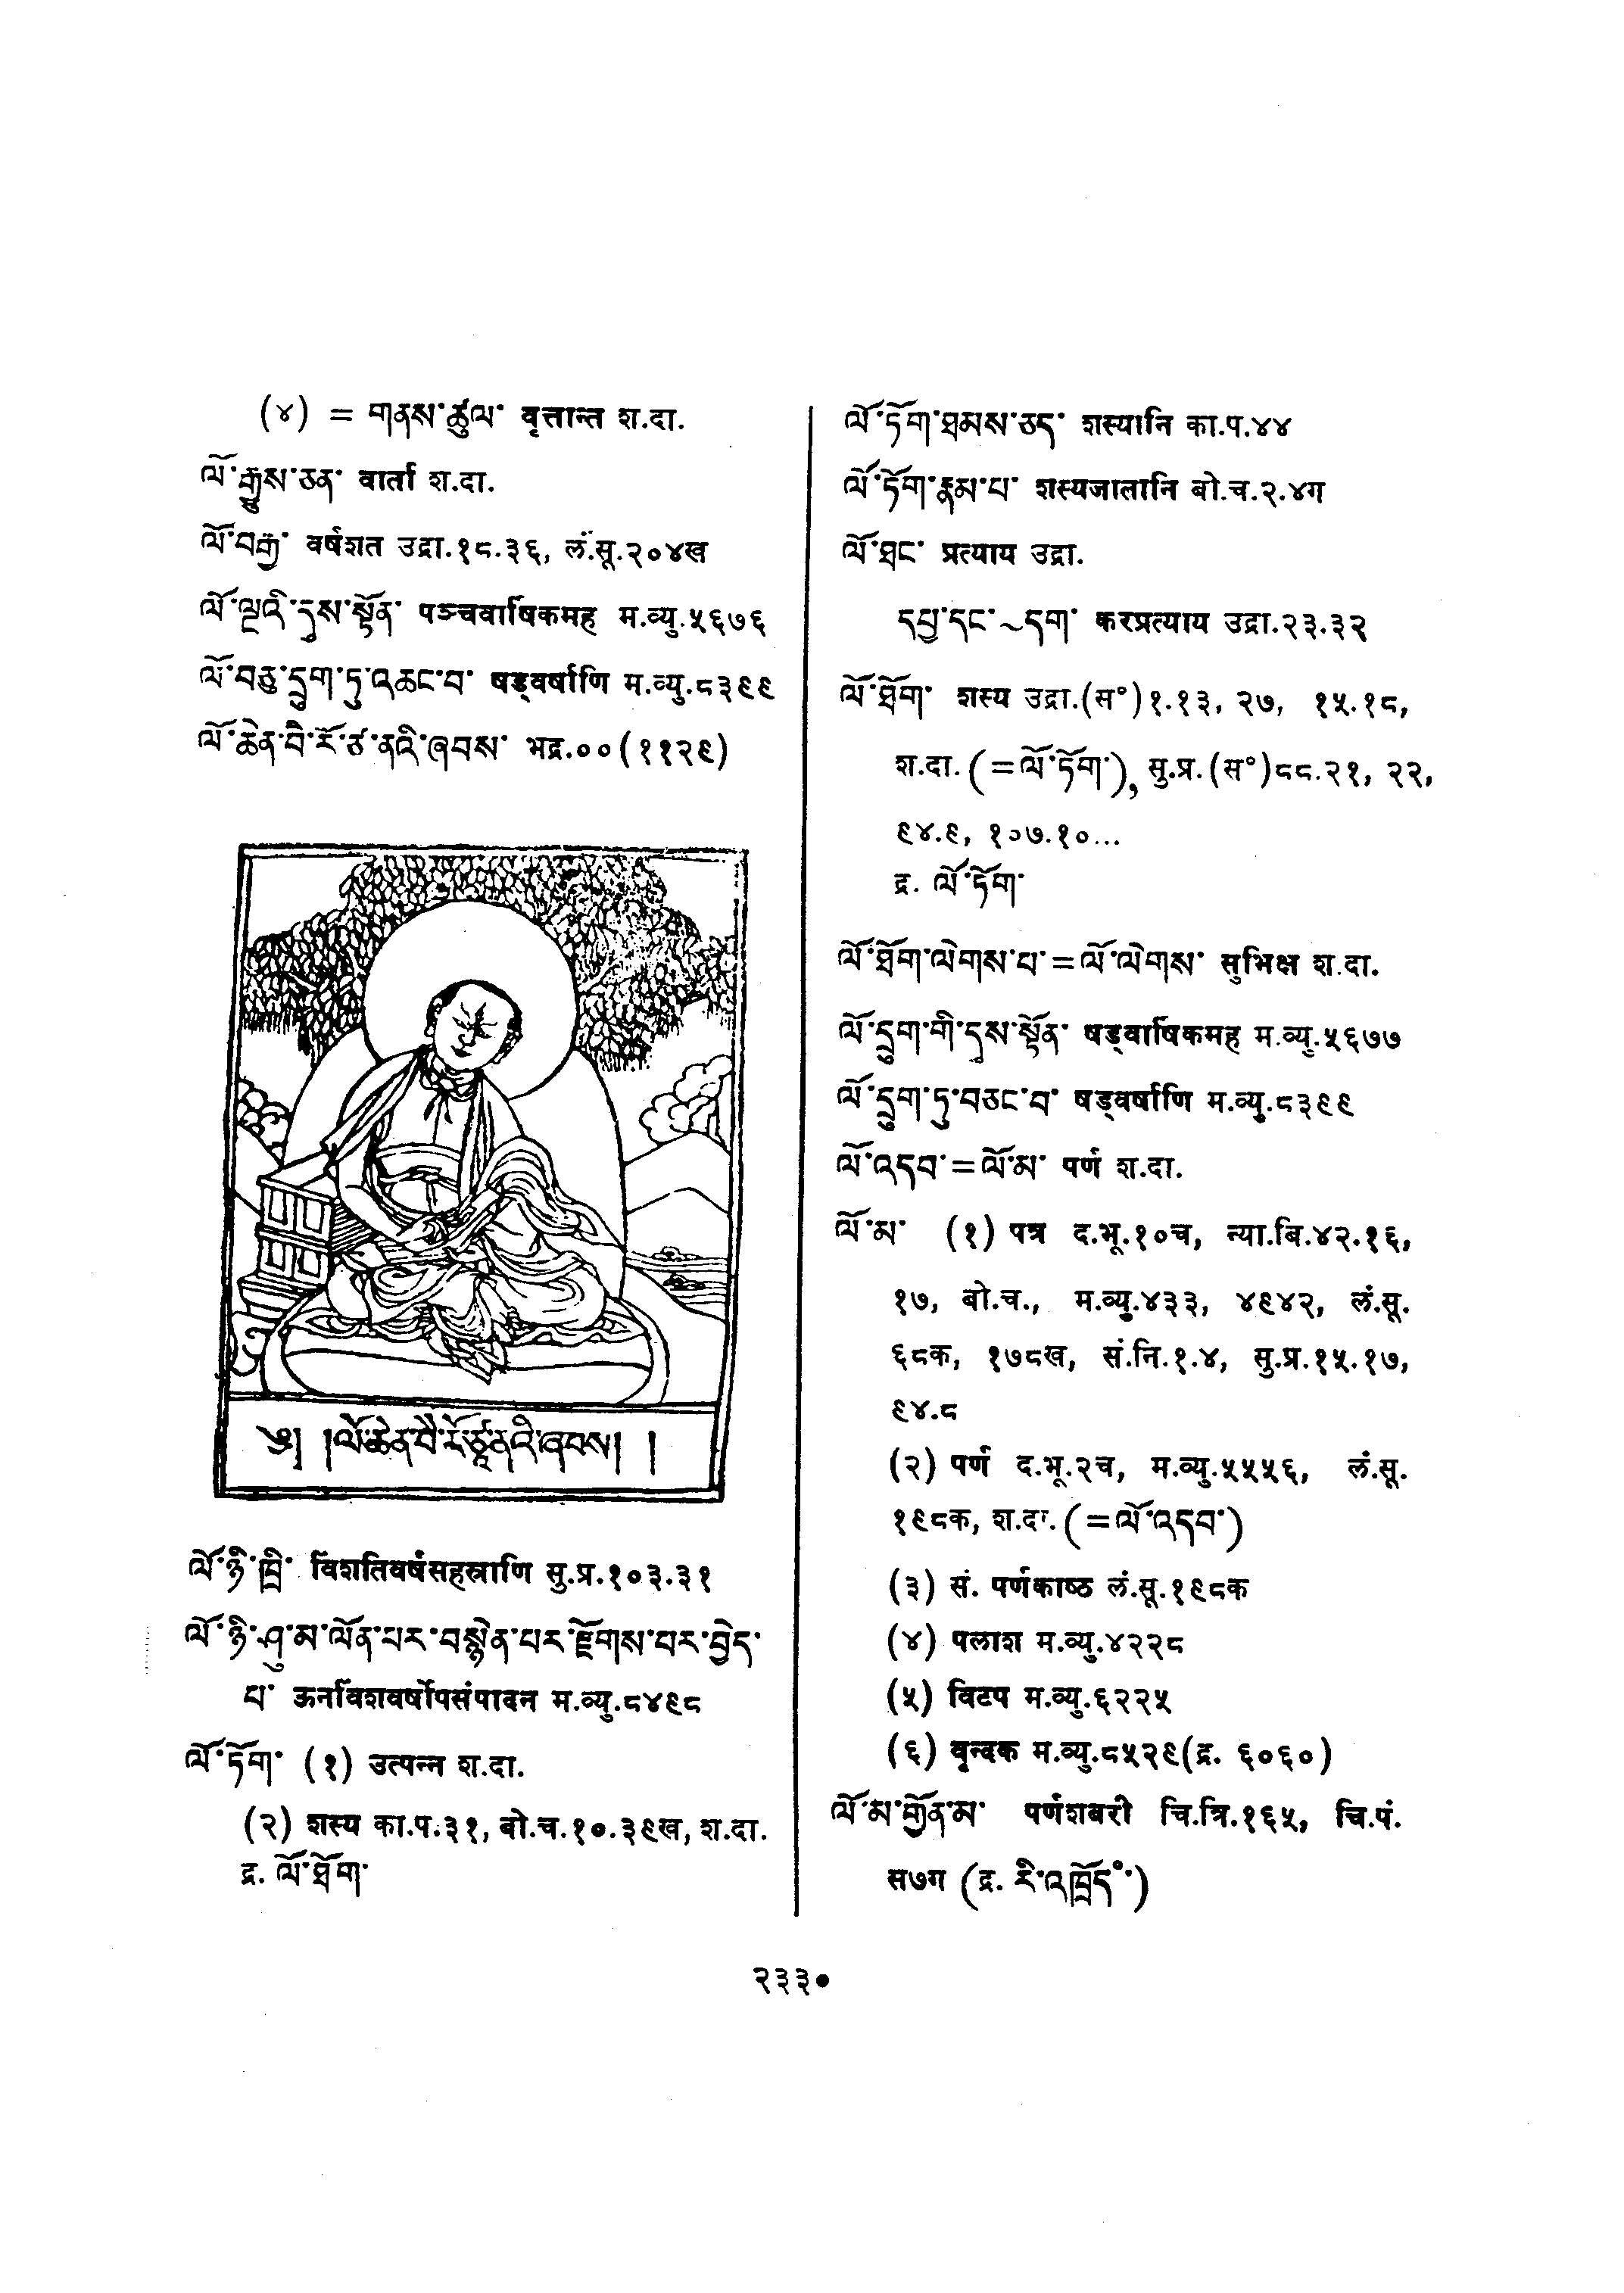 (४) = གནས་ཚུལ་ वृत्तान्त श.दा.
ལོ་རྒྱུས་ཅན་ वार्ता श.दा.
ལོ་བརྒྱ་ वर्षशत उद्रा.१८.३६, लं.सू.२०४ख
ལོ་ལྔའི་དུས་སྟོན་ पञ्चवार्षिकमह म.व्यु.५६७६
ལོ་བཅུ་དྲུག་ཏུ་འཆང་བ་ षड्वर्षाणि म.व्यु.८३९९
ལོ་ཆེན་བཻ་རོ་ཙ་ནའི་ཞབས་ भद्र.००(११२९)
༄། །ལོ་ཆེན་བཻ་རོ་ཙཱ་ནའི་ཞབས། །
ལོ་ཉི་ཁྲི་ विंशतिवर्षसहस्राणि सु.प्र.१०३.३१
ལོ་ཉི་ཤུ་མ་ལོན་པར་བསྙེན་པར་རྫོགས་པར་བྱེད་
པ་ ऊनविंशवर्षोपसंपादन म.व्यु.८४९८
ལོ་ཏོག་ (१) उत्पन्न श.दा.
(२) शस्य का.प.३१, बो.च.१०.३९ख, श.दा.
द्र. ལོ་ཐོག་
ལོ་ཏོག་ཐམས་ཅད་ शस्यानि का.प.४४
ལོ་ཏོག་རྣམ་པ་ शस्यजातानि बो.च.२.४ग
ལོ་ཐང་ प्रत्याय उद्रा.
དཔྱ་དང་~དག་ करप्रत्याय उद्रा.२३.३२
ལོ་ཐོག་ शस्य उद्रा.(स°)१.१३, २७, १५.१८,
श.दा. (=ལོ་ཏོག་), सु.प्र.(स°)८८.२१, २२,
९४.९, १०७.१०...
द्र. ལོ་ཏོག་
ལོ་ཐོག་ལེགས་པ་=ལོ་ལེགས་ सुभिक्ष श.दा.
ལོ་དྲུག་གི་དུས་སྟོན་ षड्वार्षिकमह म.व्यु.५६७७
ལོ་དྲུག་ཏུ་བཅང་བ་ षड्वर्षाणि म.व्यु.८३९९
ལོ་འདབ་=ལོ་མ་ पर्ण श.दा.
ལོ་མ་ (१) पत्र द.भू.१०च, न्या.बि.४२.१६,
१७, बो.च., म.व्यु.४३३, ४९४२, लं.सू.
६८क, १७८ख, सं.नि.१.४, सु.प्र.१५.१७,
९४.८
(२) पर्ण द.भू.२च, म.व्यु.५५५६, लं.सू.
१९८क, श.दा. (=ལོ་འདབ་)
(३) सं. पर्णकाष्ठ लं.सू.१९८क
(४) पलाश म.व्यु.४२२८
(५) विटप म.व्यु.६२२५
(६) वृन्दक म.व्यु.८५२९(द्र. ६०६०)
ལོ་མ་གྱོན་མ་ पर्णशबरी चि.त्रि.१६५, चि.पं.
स७ग (द्र. རི་འཁྲོད་°)
२३३•